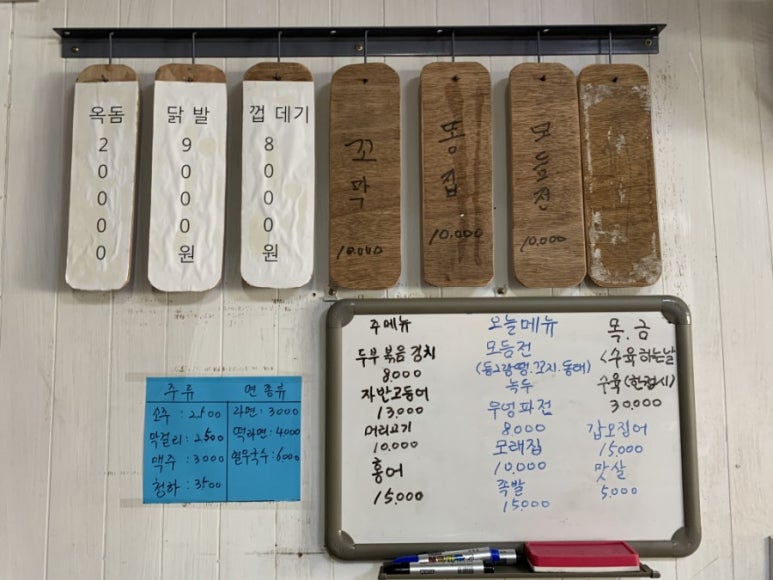 옥돔
20000
닭 발
9000원
껍 데기
8000원
꼬막
10.000
똥집
10.000
모듬전
10.000
주류
소주 : 2500
막걸리 : 2500
맥주 : 3000
청하 : 3500
면 종류
라면 : 3000
떡라면 : 4000
열무국수 : 6000
주메뉴
두부 볶음 김치
8.000
자반고등어
13.000
머리고기
10.000
홍어
15.000
오늘메뉴
모듬전
(동그랑땡.꼬지.동태)
녹두
무엉파전
8.000
모래집
10.000
족발
15.000
목.금
<수육하는날
수육(한접시)
30.000
갑오징어
15.000
맛살
5.000